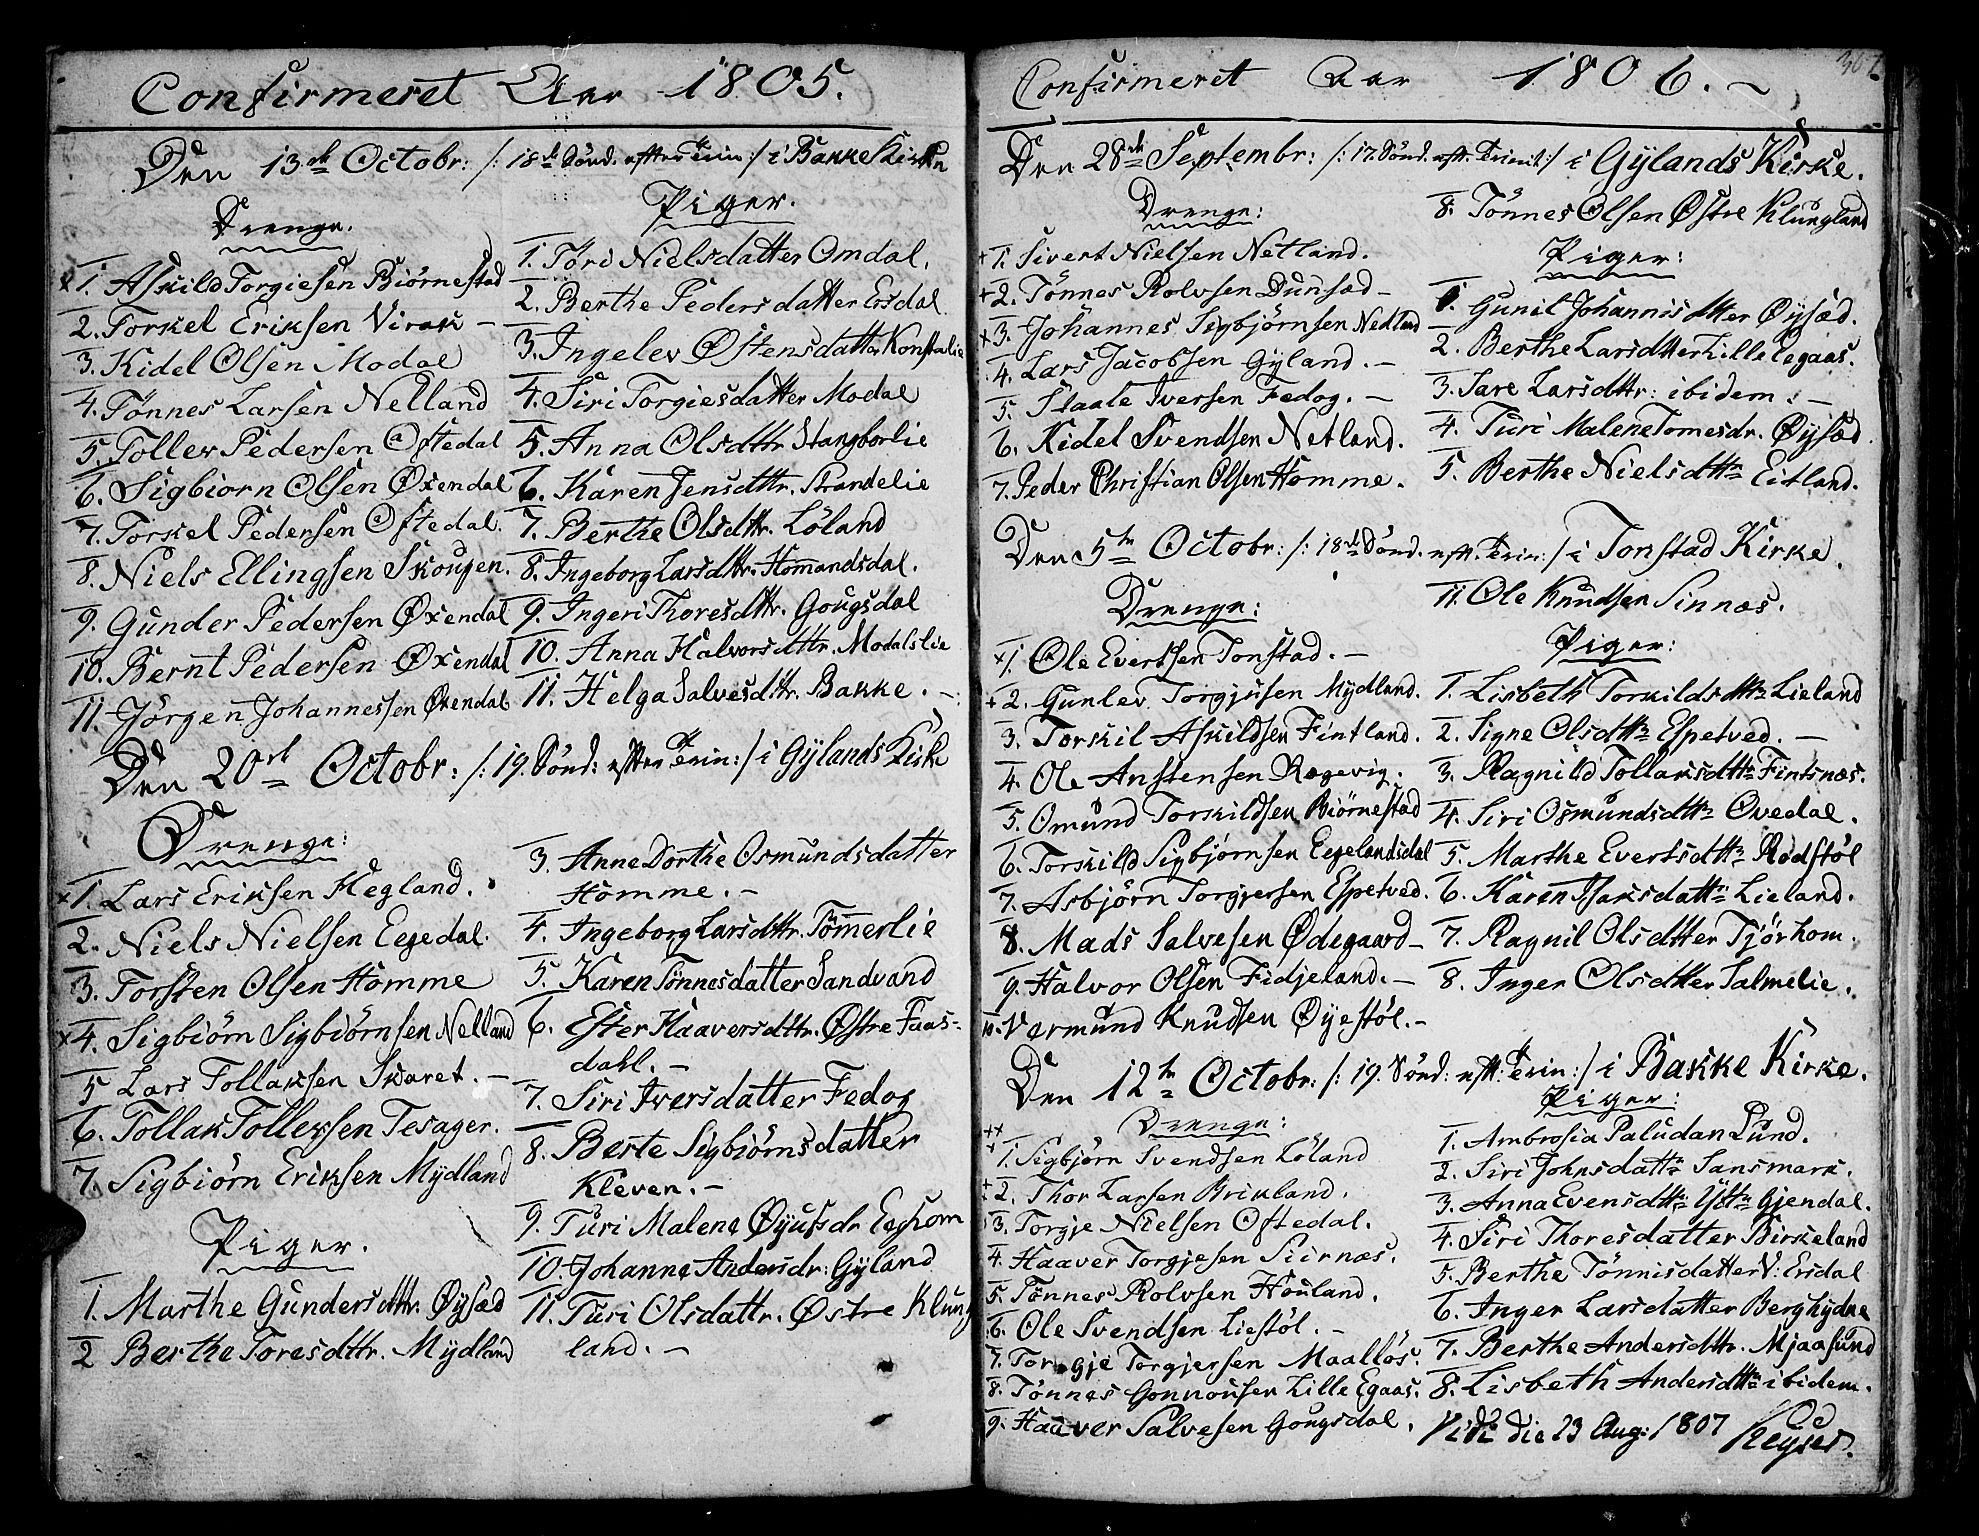 Confirmeret Aar 1805.
Den 13de Octobr: /: 18de Sönd. efter Trin: /: i Bakke Kirke
Drenge.
1. Askild Torgiesen Biörnestad
2. Torkel Eriksen Virak -
3. Kidel Olsen Modal
4. Tönnes Larsen Netland
5. Tollev Pedersen Oftedal
6. Sigbiorn Olsen Øxendal
7. Torkel Pedersen Oftedal.
8. Niels Ellingsen Skougen.
9. Gunder Pedersen Øxendal
10. Bernt Pedersen Øxendal
11. Jörgen Johannessen Øxendal
Piger.
1. Töri Nielsdatter Omdal.
2. Berthe Pedersdatter Ersdal
3. Ingelev Østensdatter Konstalie
4. Siri Torgiesdatter Modal
5. Anna Olsdttr. Stangborlie
6. Karen Jensdttr. Strandelie
7. Berthe Olsdttr. Löland
8. Ingeborg Larsdttr. Homandsdal.
9. Ingeri Thoresdttr. Gougsdal
10. Anna Halvorsdttr. Modalslie
11. Helga Salvesdttr. Bakke. -
Den 20de Octobr: /: 19. Sönd: efter Trin: /: i Gylands Kirke
Drenge:
1. Lars Eriksen Hegland.
2. Niels Nielsen Eegedal.
3. Torsten Olsen Homme
4. Sigbiörn Sigbiörnsen Netland
5 Lars Tollaksen Skaret. -
6. Tollak Tollevsen Tesager.
7. Sigbiörn Eriksen Mydland
Piger.
1. Marthe Gundersdttr. Øysæd
2 Berthe Toresdttr. Mydland
3. Anne Dorthe Osmundsdatter
Homme. -
4. Ingeborg Larsdttr. Tömmerlie
5. Karen Tönnesdatter Sandvand
6. Ester Haaversdttr. Østre Faas-
dahl. -
7. Siri Iversdatter Fedog
8. Berte Sigbiörnsdatter
Kleven. -
9. Turi Malene Øyufsdr Eeghom
10. Johanne Andersdr: Gyland
11. Turi Olsdattr. Østre Klung
land. -
Confirmeret Aar 1806. -
307
Den 28de Septembr: /: 17. Sönd. eft. Trinit: /: i Gylands Kirke.
Drenge:
+ 1. Sivert Nielsen Netland.
+ 2. Tönnes Rolvsen Dunsæd -
+ 3. Johannes Sigbjörnsen Nedland
4. Lars Jacobsen Gyland. -
5. Staale Iversen Fedog. -
6. Kidel Svendsen Netland.
7. Peder Christian Olsen Homme.
8. Tönnes Olsen Østre Klungland
Piger:
1. Gunil Johannisdtter Øysæd.
2. Berthe Larsdtter Lille Eegaas.
3. Sare Larsdttr: ibidem. -
4. Turi Malene Tomesdr. Øysæd
5. Berthe Nielsdttr Eitland.
Den 5te Octobr: /: 18de Sönd. eft. Trin: /: i Tonstad Kirke.
Drenge:
1. Ole Evertsen Tonstad. -
+ 2. Gunlev Torgjusen Mydland.
3. Torskil Askildsen Fintland.
4. Ole Anstensen Rægevig.
5. Omund Torkildsen Biörnestad
6. Torskild Sigbjörnsen Eegelandsdal
7. Asbjörn Torgjersen Espetved.
8. Mads Salvesen Ødegaard -
9. Halvor Olsen Fidjeland. -
10. Vermund Knudsen Øyestöl. -
11. Ole Knudsen Sinnæs.
Piger:
1. Lisbeth Torkildsdttr Lieland
2. Signe Olsdttr Espetved. -
3. Ragnild Tollaksdttr Fintsnæs.
4. Siri Osmundsdttr Ovedal.
5. Marthe Evertsdttr Rødstöl
6. Karen Isaksdattr Lieland.
7. Ragnil Olsdtter Tjörhom.
8. Inger Olsdtter Salmelie.
Den 12te Octobr: /: 19. Sönd: eft: Trin: /: i Bakke Kirke.
Drenge:
1. Sigbjörn Svendsen Löland
2. Thor Larsen Birkland.
3. Torgje Nielsen Oftedal.
4. Haaver Torgjesen Siirnæs.
5. Tönnes Rolvsen Houland.
6. Ole Svendsen Liestöl. -
7. Torgje Torgjersen Maallös.
8. Tönnes Gonnousen Lille Egaas.
9. Haaver Salvesen Gougsdal.
Piger:
1. Ambrosia Paludan Lund.
2. Siri Johnsdattr Sansmark.
3. Anna Evensdttr Yttre Gjendal.
4. Siri Thoresdatter Birkeland
5. Berthe Tönnisdatter V: Ersdal
6. Inger Larsdatter Berghydne
7. Berthe Andersdttr. Mjaasund
8. Lisbeth Andersdttr ibidem.
Vidi die 23 Aug: 1807 Keyser.